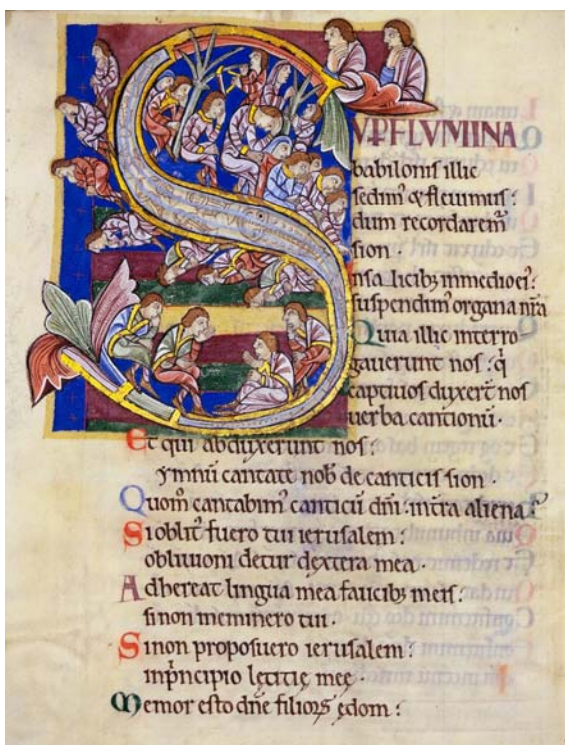 SUꝑ FLUMINA
babilonis illic
sedimꝰ & fleuimus:
dum recordaremꝰ
sion.
Insalicibꝫ inmedioeiꝰ:
suspendimꝰ organa nr̄a
Quia illic interro
gauerunt nos: qͥ
captiuos duxer̄t nos
uerba cantionū.
Et qui abduxerunt nos:
ymnū cantate nob̄ de canticis sion.
Quom̄ cantabimꝰ canticū dn̄i: intra aliena
Si oblitꝰ fuero tui ierusalem:
obliuioni detur dextera mea.
Adhereat lingua mea faucibꝫ meis:
si non meminero tui.
Si non proposuero ierusalem:
inpͥncipio lętitię meę.
Memor esto dn̄e filioꝝ ędom: